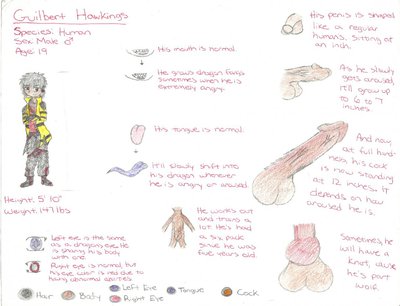 Guilbert Hawkings
Species: Human
Sex: Male ♂
Age: 19
Height: 5' 10"
Weight: 147 lbs
His mouth is normal
He grows dragon fangs
sometimes when he is
extremely angry.
His tongue is normal.
It'll slowly shift into
his dragon whenever
he is angry or aroused.
Left eye is the same
as a dragon's eye. He
is sharing his body
with one.
Right eye is normal, but
his eye color is red due to
having abnormal abilities
He works
out and trains a
lot. He's had
a six pack
since he was
five years old.
His penis is shaped
like a regular
humans. Sitting at
an inch.
As he slowly
gets aroused,
it'll grow up
to 6 to 7
inches.
And now
at full hard-
ness, his cock
is now standing
at 12 inches. It
depends on how
aroused he is.
Sometimes, he
will have a
knot, cause
he's part
wolf.
Hair
Body
Left Eye
Right Eye
Tongue
Cock